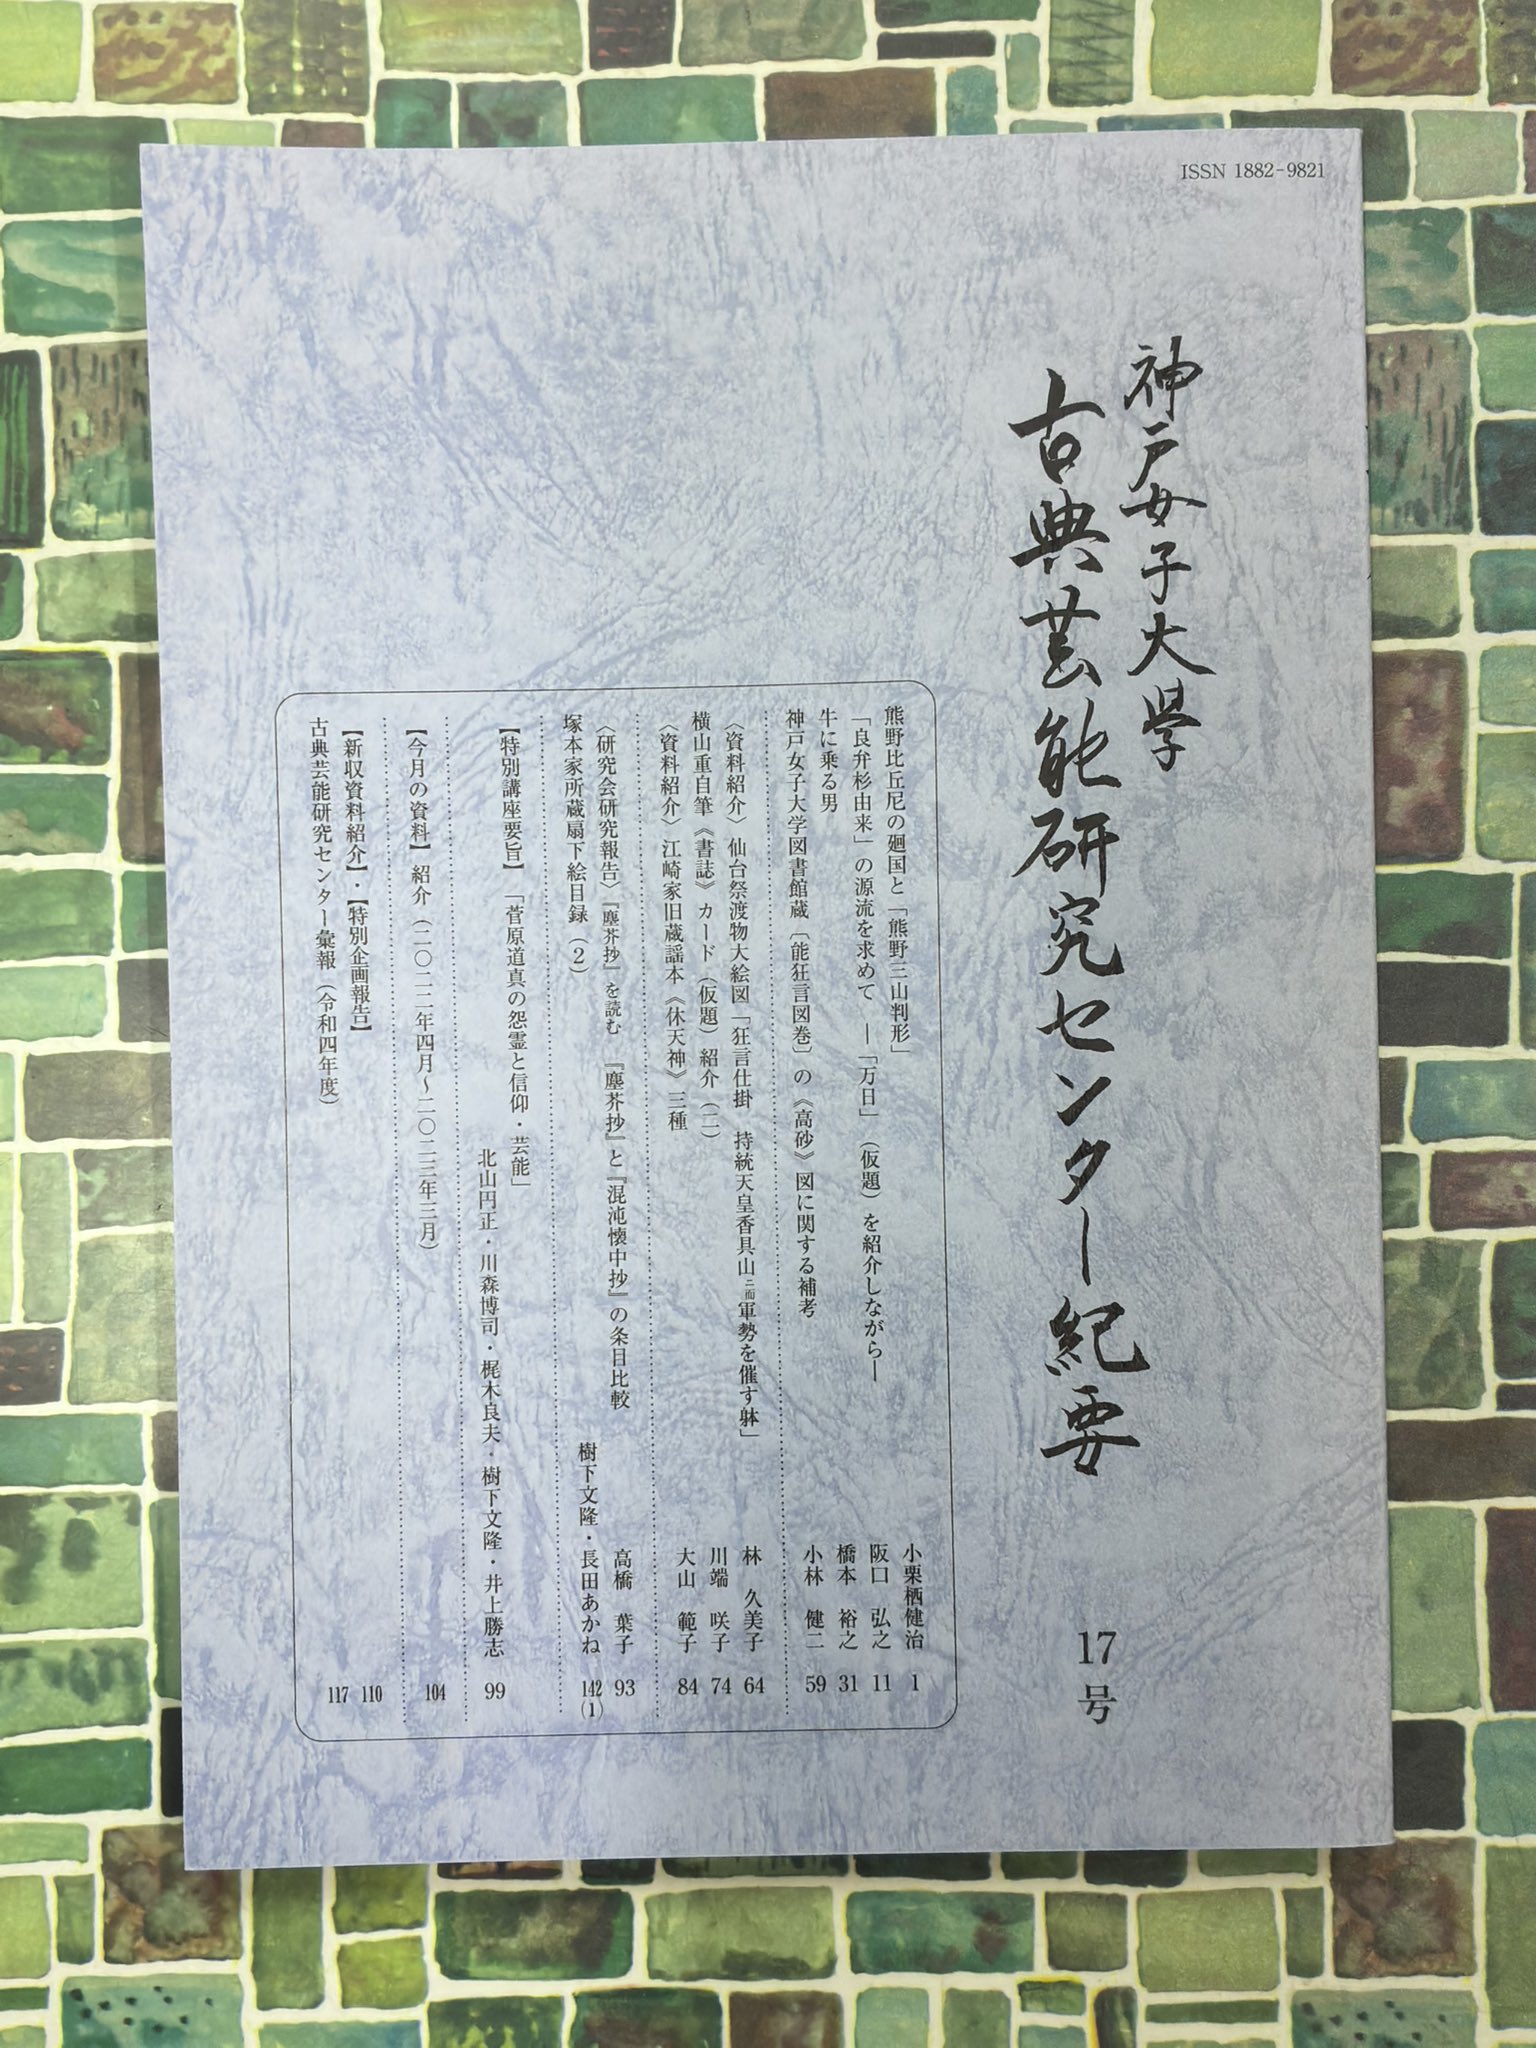 ISSN 1882-9821
神戸女子大學
古典芸能研究センター紀要
17号
熊野比丘尼の廻国と「熊野三山判形」 小栗栖健治 1
「良弁杉由来」の源流を求めて ―「万日」（仮題）を紹介しながら― 阪口 弘之 11
牛に乗る男 橋本 裕之 31
神戸女子大学図書館蔵〔能狂言図巻〕の《高砂》図に関する補考 小林 健二 59
〈資料紹介〉仙台祭渡物大絵図「狂言仕掛 持統天皇香具山ニ而軍勢を催す躰」 林 久美子 64
横山重自筆《書誌》カード（仮題）紹介（二） 川端 咲子 74
〈資料紹介〉江崎家旧蔵謡本《休天神》三種 大山 範子 84
〈研究会研究報告〉『塵芥抄』を読む 『塵芥抄』と『混沌懐中抄』の条目比較 高橋 葉子 93
塚本家所蔵扇下絵目録（2） 樹下文隆・長田あかね 142(1)
【特別講座要旨】「菅原道真の怨霊と信仰・芸能」
北山円正・川森博司・梶木良夫・樹下文隆・井上勝志 99
【今月の資料】紹介（二〇二二年四月～二〇二三年三月） 104
【新収資料紹介】・【特別企画報告】 110
古典芸能研究センター彙報（令和四年度） 117